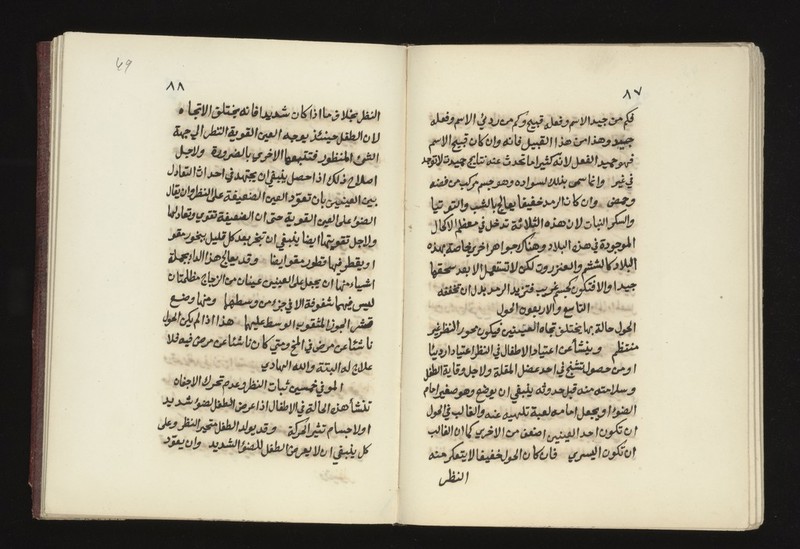 ٨٧
فكم من جيد الاسم وفعله قبيح وكم من ردئ الاسم وفعله
جيد وهذا من هذا القبيل فانه وان كان قبيح الاسم
فهو جيد الفعل لانه كثيرا ما تحدث عنه نتايج جيدة لا توجد
في غيره وانما سمى بذلك لسواده وهو جسم مركب من فضه
وحمض وان كان الرمد خفيفا يعالج بالشب والتوتيا
والسكر النبات لان هذه الثلاثة تدخل في معظم الاكحال
الموجودة في هذه البلاد وهناك جواهر اخرى خاصة بهذه
البلاد كالششم والعنزروت لكن لا تستعمل الا بعد سحقها
جيدا والا فتكون كجسم غريب فتزيد الرمد بدل ان تخففه
التاسع والاربعون الحول
الحول حالة بها يختلف تجاه العينين فيكون محور النظر غير
منتظم وينشأ عن اعتياد الاطفال في النظر اعتيادا رديئا
او من حصول تشنج في احد عضل المقلة ولاجل وقاية الطفل
وسلامته منه قبل حدوثه ينبغي ان يوضع وهو صغير امام
الضوء ويجعل امامه لعبة تلهيه عنه والغالب في الحول
ان تكون احد العينين اضعف من الاخرى كما ان الغالب
ان تكون اليسرى فان كان الحول خفيفا لا يتعكر منه
النظر
٤٩
٨٨
النظر بخلاف ما اذا كان شديدا فانه يختلف الاتجاه
لان الطفل حينئذ يوجه العين القوية التنظر الى جهة
الشئ المنظور فتتبعها الاخرى بالضرورة ولاجل
اصلاح ذلك اذا حصل ينبغي ان يجتهد في احداث التعادل
بين العينين بان تعود العين الضعيفة على النظر وان يقال
الضوء على العين القوية حتى ان الضعيفة تقوى وتعادلها
ولاجل تقويتها ايضا ينبغي ان تبخر بعد كل قليل ببخور مقو
او يقطر فيها قطور مقو ايضا وقد يعالج هذا الداء بجملة
اشياء منها ان يجعل على العينين عينان من الزجاج مظلمتان
ليس فيهما شفوفة الا في جزء من وسطهما ومنها وضع
قشر الجوز المثقوب الوسط عليها هذا اذا لم يكن الحول
ناشئا عن مرض في المخ ومتى كان ناشئا عن مرض فيه فلا
علاج له البتة والله الهادي
الموفي خمسين ثبات النظر وعدم تحرك الاجفان
تنشأ هذه الحالة في الاطفال اذا عرض الطفل لضوء شديد
او لاجسام تثير الحركة وقد يولد الطفل متحير النظر وعلى
كل ينبغي ان لا يعرض الطفل للضوء الشديد وان يعود